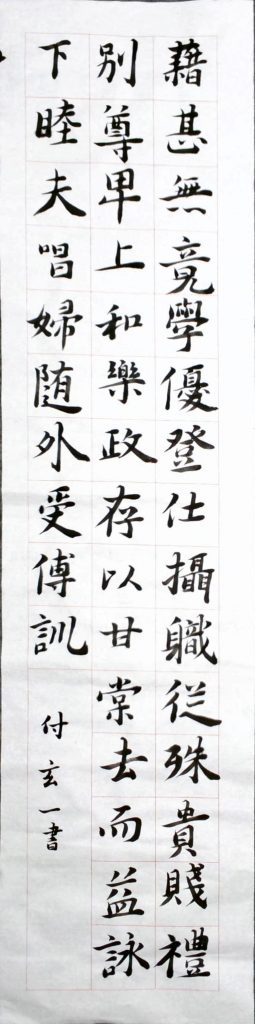 藉甚無竟學優登仕攝軄従殊貴賤禮
別尊卑上和樂政存以甘棠去而益詠
下睦夫唱婦随外受傅訓
付玄一書